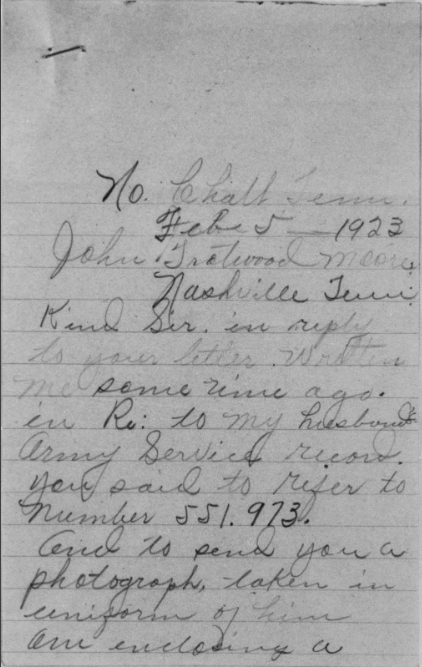 No. Chatt Tenn.
Feb 5 — 1923
John Trotwood Moore
Nashville Tenn.
Kind Sir. in reply
to your letter. Written
me some time ago.
in Re: to my husband's
Army Service record.
you said to refer to
number 551.973.
and to send you a
photograph, taken in
uniform of him
am enclosing a